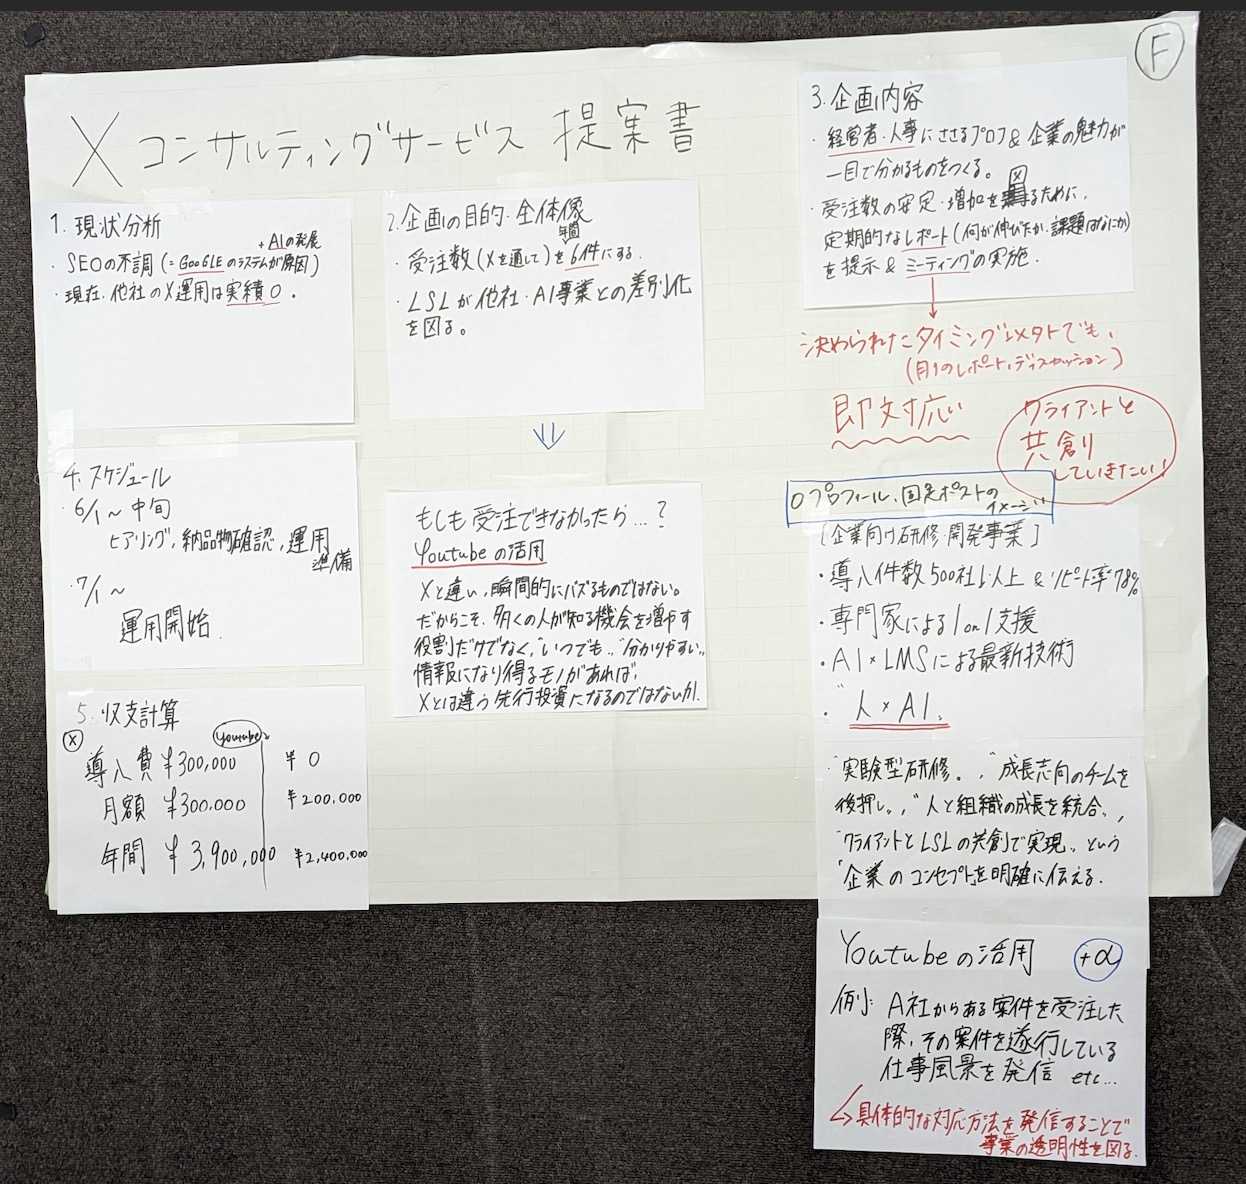 F
X コンサルティングサービス 提案書
1. 現状分析
+AIの発展
・SEOの不調(=GOOGLEのシステムが原因)
・現在、他社のX運用は実績0。
2.企画の目的・全体像
年間
・受注数(Xを通して)を6件にする.
・LSLが他社・AI事業との差別化
を図る。
⇓
もしも受注できなかったら…?
Youtubeの活用
Xと違い、瞬間的にバズるものではない。
だからこそ、多くの人が知る機会を増やす
役割だけでなく、"いつでも"、"分かりやすい"
情報になり得るモノがあれば、
Xとは違う先行投資になるのではないか.
3.企画内容
・経営者・人事にささるプロフ&企業の魅力が
一目で分かるものをつくる。
図
・受注数の安定・増加をるために、
定期的なレポート(何が伸びたか、課題はなにか)
を提示&ミーティングの実施.
決められたタイミング以外でも、
(月1のレポート、ディスカッション)
即対応い
クライアントと
共創り
していきたい!
4.スケジュール
・6/1〜中旬
ヒアリング,納品物確認,運用
準備
・7/1〜
運用開始.
5.収支計算
X Youtube
導入費 ¥300,000 ¥0
月額 ¥300,000 ¥200,000
年間 ¥3,900,000 ¥2,400,000
○プロフィール、固定ポストの
イメージ
[企業向け研修・開発事業]
・導入件数500社以上&リピート率78%
・専門家による1on1支援
・AI×LMSによる最新技術
・"人×AI"
"実験型研修"、"成長志向のチームを
後押し"、"人と組織の成長を統合"、
"クライアントとLSLの共創で実現"という
「企業のコンセプト」を明確に伝える.
Youtubeの活用 +α
例: A社からある案件を受注した
際、その案件を遂行している
仕事風景を発信 etc...
↳具体的な対応方法を発信することで
事業の透明性を図る.